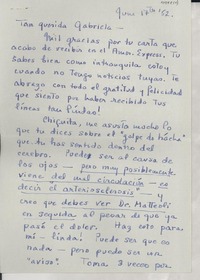 Junio 17th '52.
Tan querida Gabriela -
Mil gracias por tu carta que
acabo de recibir en el Amer. Express. Tu
sabes bien como intranquila estoy
cuando no tengo noticias tuyas. Te
abrazo con todo el gratitud y felicidad
que siento por haber recibido tus
líneas tan lindas!
Chiquita, me asusta mucho lo
que tu dices sobre el "golpe de hacha"
que tu has sentido dentro del
cerebro. Puede ser al causa de
los ojos - pero muy posiblemente
viene del mal circulación - es
decir el arteriosclerosis"
creo que debes ver Dr. Matteoli
en seguida al pesar de que ya
pasó el dolor. Haz esto para
mi - linda. Puede ser que es
nada - pero puede ser un
"aviso". Toma 3 veces por